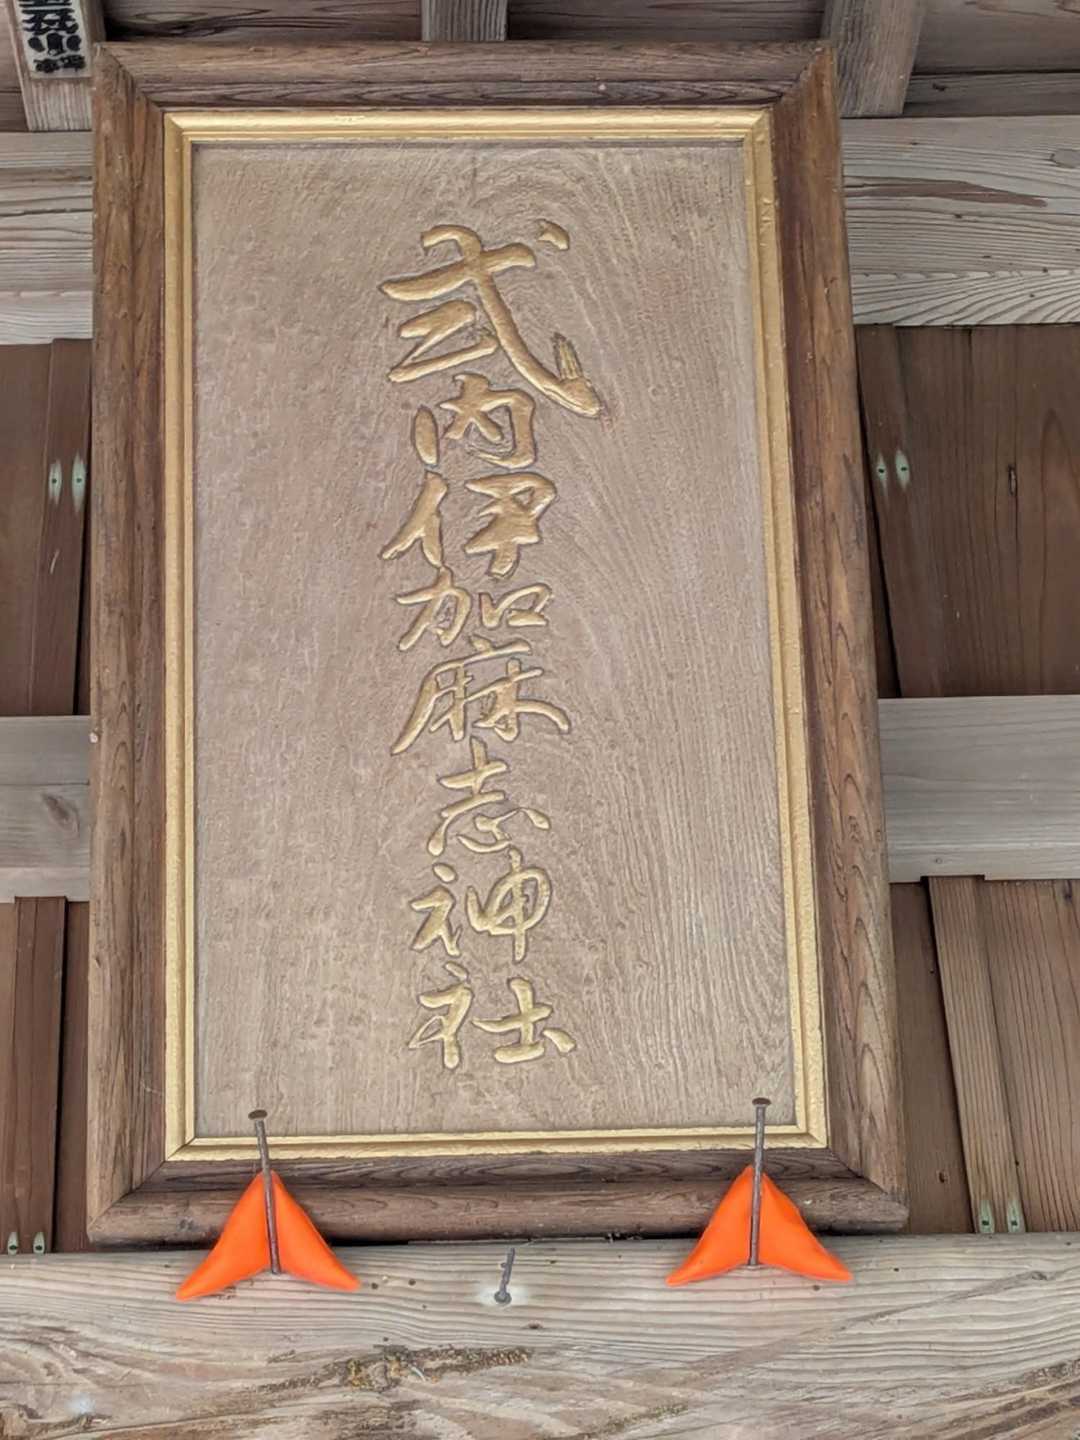 式内伊加麻志神社